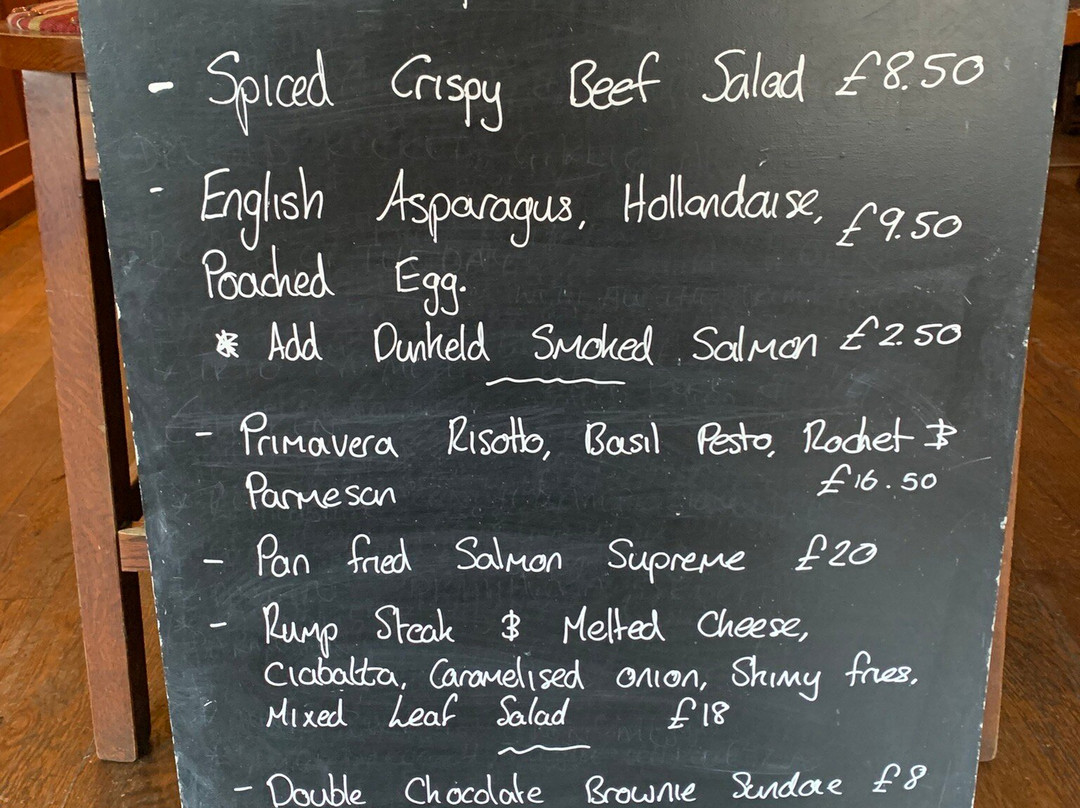 - Spiced Crispy Beef Salad £8.50
- English Asparagus, Hollandaise, £9.50
Poached Egg.
* Add Dunkeld Smoked Salmon £2.50
- Primavera Risotto, Basil Pesto, Rocket &
Parmesan £16.50
- Pan fried Salmon Supreme £20
- Rump Steak & Melted Cheese,
Ciabatta, Caramelised onion, Skinny fries,
Mixed Leaf Salad £18
- Double Chocolate Brownie Sundae £8